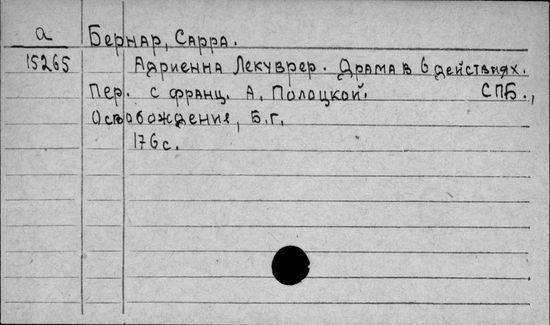 а Бернар, Сарра.
15265 Адриенна Лекуврер. Драма в 6 действиях.
Пер. с франц. А. Полоцкой. СПБ.,
Освобождение, Б.г.
176 с.